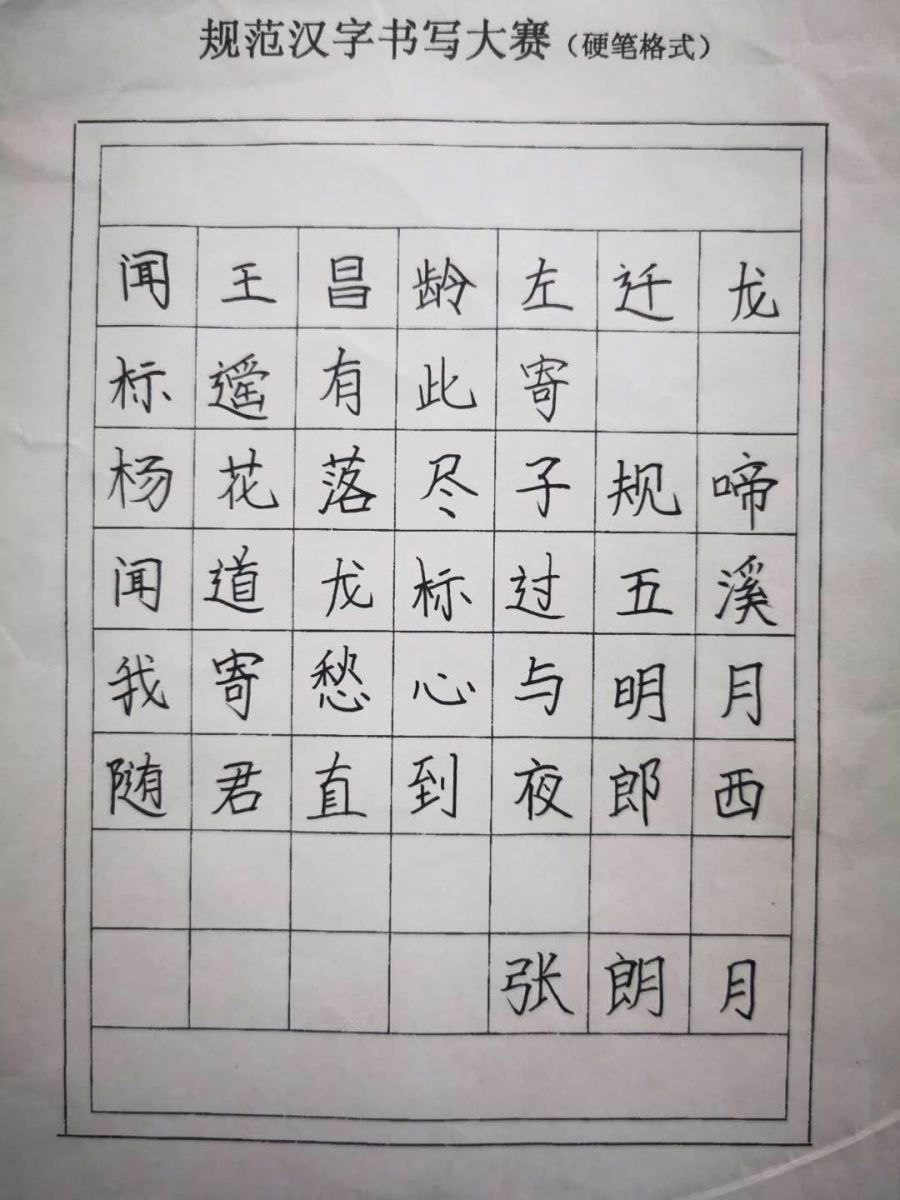 规范汉字书写大赛（硬笔格式）
闻王昌龄左迁龙
标遥有此寄
杨花落尽子规啼
闻道龙标过五溪
我寄愁心与明月
随君直到夜郎西
张朗月